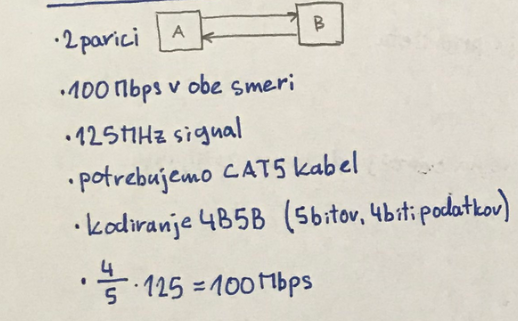 ·2 parici A B
·100 Mbps v obe smeri
·125 MHz signal
·potrebujemo CAT5 kabel
·kodiranje 4B5B (5bitov, 4biti podatkov)
·4/5 · 125 = 100 Mbps